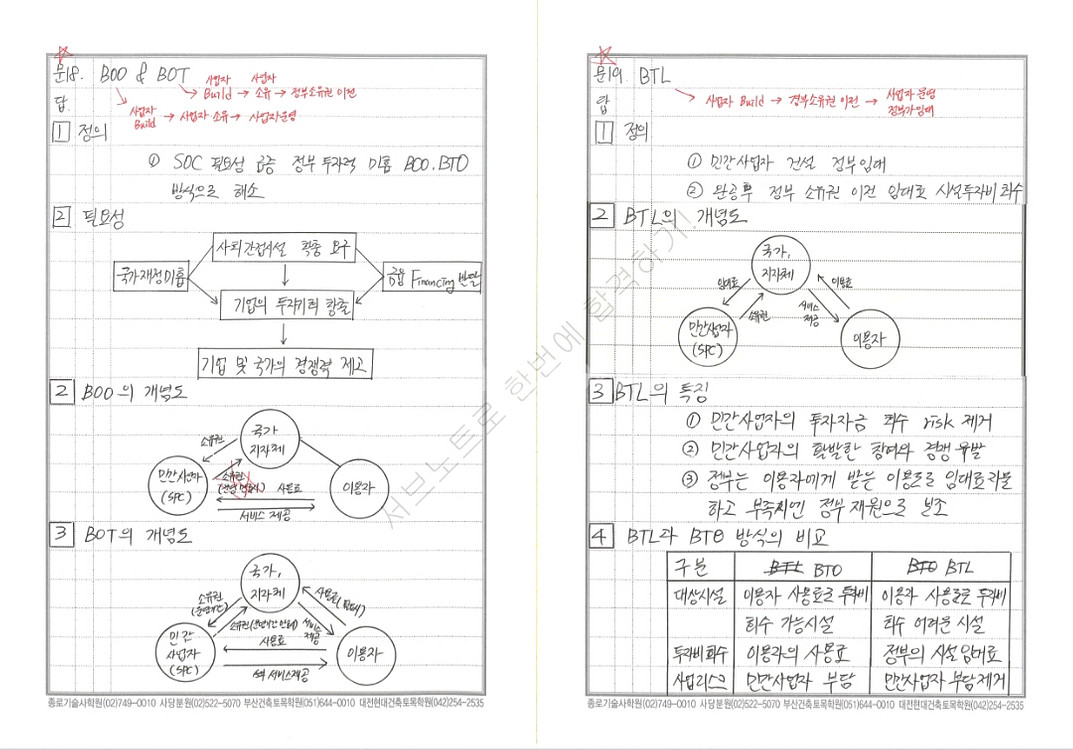 문18. BOO & BOT
사업자 사업자
Build → 소유 → 정부소유권 이전
답
사업자
Build → 사업자 소유 → 사업자운영
1 정의
① SOC 필요성 급증 정부 투자력 미흡 BOO.BTO
방식으로 해소
2 필요성
사회간접시설 확충 요구
국가재정미흡
금융 Financing 발달
기업의 투자기회 창출
기업 및 국가의 경쟁력 제고
2 BOO의 개념도
국가
지자체
소유권
민간사업자
(SPC)
소유권
사용료
이용자
서비스 제공
3 BOT의 개념도
국가,
지자체
소유권
사용료
서비스
제공
사용료
민간
사업자
(SPC)
이용자
서비스제공
종로기술사학원(02)749-0010 사당분원(02)522-5070 부산건축토목학원(051)644-0010 대전현대건축토목학원(042)254-2535
문19. BTL
사업자 Build → 정부소유권 이전 → 사업자 운영
정부가 임대
답
1 정의
① 민간사업자 건설 정부임대
② 완공후 정부 소유권 이전 임대료 시설투자비 회수
2 BTL의 개념도
국가,
지자체
임대료
이용료
소유권
서비스
제공
민간사업자
(SPC)
이용자
3 BTL의 특징
① 민간사업자의 투자자금 회수 risk 제거
② 민간사업자의 활발한 참여와 경쟁 유발
③ 정부는 이용자에게 받은 이용료로 임대료지불
하고 부족시엔 정부 재원으로 보조
4 BTL과 BTO 방식의 비교
구분 BTL BTO BTO BTL
대상시설 이용자 사용료로 투자비 이용자 사용료로 투자비
회수 가능시설 회수 어려운 시설
투자비회수 이용자의 사용료 정부의 시설임대료
사업리스크 민간사업자 부담 민간사업자 부담제거
종로기술사학원(02)749-0010 사당분원(02)522-5070 부산건축토목학원(051)644-0010 대전현대건축토목학원(042)254-2535
서브노트로 한번에 합격하기!